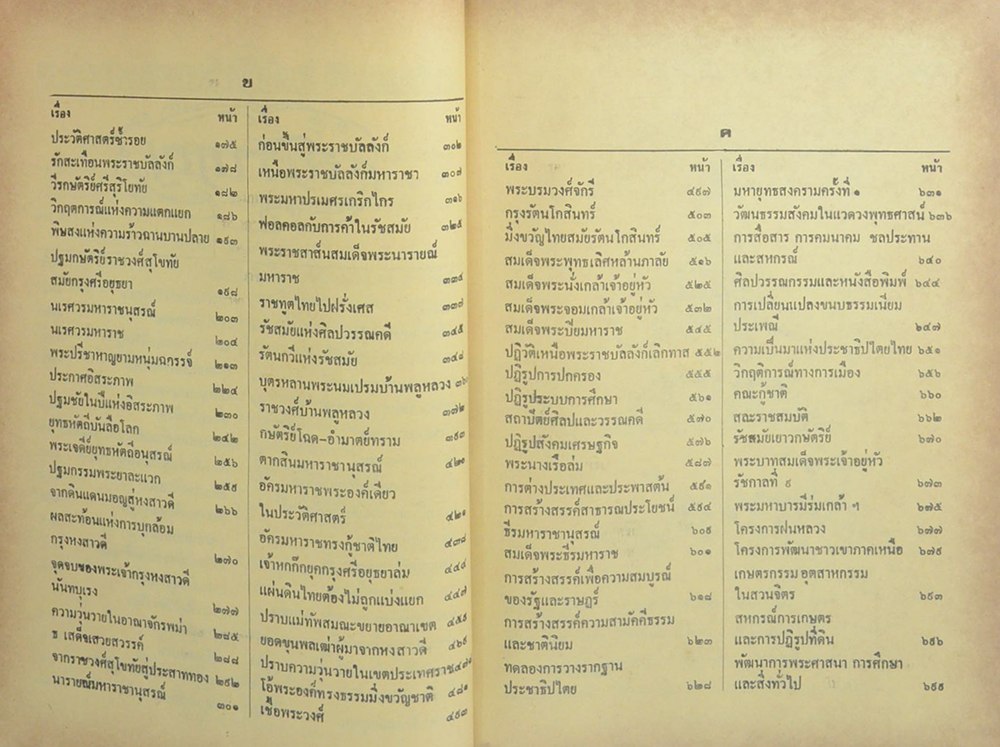 ข
เรื่อง หน้า
ประวัติศาสตร์ซ้ำรอย ๑๗๕
รักสะเทือนพระราชบัลลังก์ ๑๗๘
วีรกษัตริย์ศรีสุริโยทัย ๑๘๒
วิกฤตการณ์แห่งความแตกแยก ๑๘๖
พิษสงแห่งความร้าวฉานบานปลาย ๑๙๓
ปฐมกษัตริย์ราชวงศ์สุโขทัย
สมัยกรุงศรีอยุธยา ๑๙๘
นเรศวรมหาราชานุสรณ์ ๒๐๓
นเรศวรมหาราช ๒๐๔
พระปรีชาหาญยามหนุ่มฉกรรจ์ ๒๑๓
ประกาศอิสระภาพ ๒๒๔
ปฐมชัยในปีแห่งอิสระภาพ ๒๓๐
ยุทธหัตถีบันลือโลก ๒๔๒
พระเจดีย์ยุทธหัตถีอนุสรณ์ ๒๕๖
ปฐมกรรมพระยาละแวก ๒๕๙
จากดินแดนมอญสู่หงสาวดี ๒๖๖
ผลสะท้อนแห่งการบุกล้อม
กรุงหงสาวดี ๒๗๐
จุดจบของพระเจ้ากรุงหงสาวดี
นันทบุเรง ๒๗๗
ความวุ่นวายในอาณาจักรพม่า ๒๘๕
ธ เสด็จเสวยสวรรค์ ๒๘๘
จากราชวงศ์สุโขทัยสู่ประสาททอง ๒๙๒
นารายณ์มหาราชานุสรณ์ ๓๐๑
เรื่อง หน้า
ก่อนขึ้นสู่พระราชบัลลังก์ ๓๐๒
เหนือพระราชบัลลังก์มหาราชา ๓๐๗
พระมหาปรเมศรเกริกไกร ๓๑๖
ฟอลคอลกับการค้าในรัชสมัย ๓๒๕
พระราชสาส์นสมเด็จพระนารายณ์
มหาราช ๓๓๔
ราชทูตไทยไปฝรั่งเศส ๓๓๗
รัชสมัยแห่งศิลปวรรณคดี ๓๔๕
รัตนกวีแห่งรัชสมัย ๓๔๘
บุตรหลานพระนมเปรมบ้านพลูหลวง ๓๖๐
ราชวงศ์บ้านพลูหลวง ๓๗๒
กษัตริย์โฉด-อำมาตย์ทราม ๓๙๓
ตากสินมหาราชานุสรณ์ ๔๒๐
อัครมหาราชพระองค์เดียว
ในประวัติศาสตร์ ๔๒๑
อัครมหาราชทรงกู้ชาติไทย ๔๓๘
เจ้าหกก๊กยุคกรุงศรีอยุธยาล่ม ๔๔๔
แผ่นดินไทยต้องไม่ถูกแบ่งแยก ๔๔๗
ปราบแม่ทัพสมณะขยายอาณาเขต ๔๕๕
ยอดขุนพลเฒ่าผู้มาจากหงสาวดี ๔๖๕
ปราบความวุ่นวายในเขตประเทศราช ๔๗๔
โอ้พระองค์ทรงธรรมมิ่งขวัญชาติ ๔๘๑
เชื้อพระวงศ์ ๔๙๓
ค
เรื่อง หน้า
พระบรมวงศ์จักรี ๔๙๗
กรุงรัตนโกสินทร์ ๕๐๓
มิ่งขวัญไทยสมัยรัตนโกสินทร์ ๕๐๕
สมเด็จพระพุทธเลิศหล้านภาลัย ๕๑๖
สมเด็จพระนั่งเกล้าเจ้าอยู่หัว ๕๒๕
สมเด็จพระจอมเกล้าเจ้าอยู่หัว ๕๓๒
สมเด็จพระปิยมหาราช ๕๔๕
ปฏิวัติเหนือพระราชบัลลังก์เลิกทาส ๕๕๒
ปฏิรูปการปกครอง ๕๕๕
ปฏิรูประบบการศึกษา ๕๖๑
สถาบัตย์ศิลปและวรรณคดี ๕๗๐
ปฏิรูปสังคมเศรษฐกิจ ๕๗๖
พระนางเรือล่ม ๕๘๗
การต่างประเทศและประพาสต้น ๕๙๑
การสร้างสรรค์สาธารณประโยชน์ ๕๙๔
ธีรมหาราชานุสรณ์ ๖๐๐
สมเด็จพระธีรมหาราช ๖๐๑
การสร้างสรรค์เพื่อความสมบูรณ์
ของรัฐและราษฎร์ ๖๑๘
การสร้างสรรค์ความสามัคคีธรรม
และชาตินิยม ๖๒๓
ทดลองการวางรากฐาน
ประชาธิปไตย ๖๒๘
เรื่อง หน้า
มหายุทธสงครามครั้งที่ ๑ ๖๓๑
วัฒนธรรมสังคมในแวดวงพุทธศาสน์ ๖๓๖
การสื่อสาร การคมนาคม ชลประทาน
และสหกรณ์ ๖๔๐
ศิลปวรรณกรรมและหนังสือพิมพ์ ๖๔๔
การเปลี่ยนแปลงขนบธรรมเนียม
ประเพณี ๖๔๗
ความเป็นมาแห่งประชาธิปไตยไทย ๖๕๑
วิกฤติการณ์ทางการเมือง ๖๕๖
คณะกู้ชาติ ๖๖๐
สละราชสมบัติ ๖๖๒
รัชสมัยเยาวกษัตริย์ ๖๗๐
พระบาทสมเด็จพระเจ้าอยู่หัว
รัชกาลที่ ๙ ๖๗๓
พระมหาบารมีร่มเกล้า ฯ ๖๗๕
โครงการฝนหลวง ๖๗๗
โครงการพัฒนาชาวเขาภาคเหนือ ๖๗๙
เกษตรกรรม อุตสาหกรรม
ในสวนจิตร ๖๙๓
สหกรณ์การเกษตร
และการปฏิรูปที่ดิน ๖๙๖
พัฒนาการพระศาสนา การศึกษา
และสิ่งทั่วไป ๖๙๙